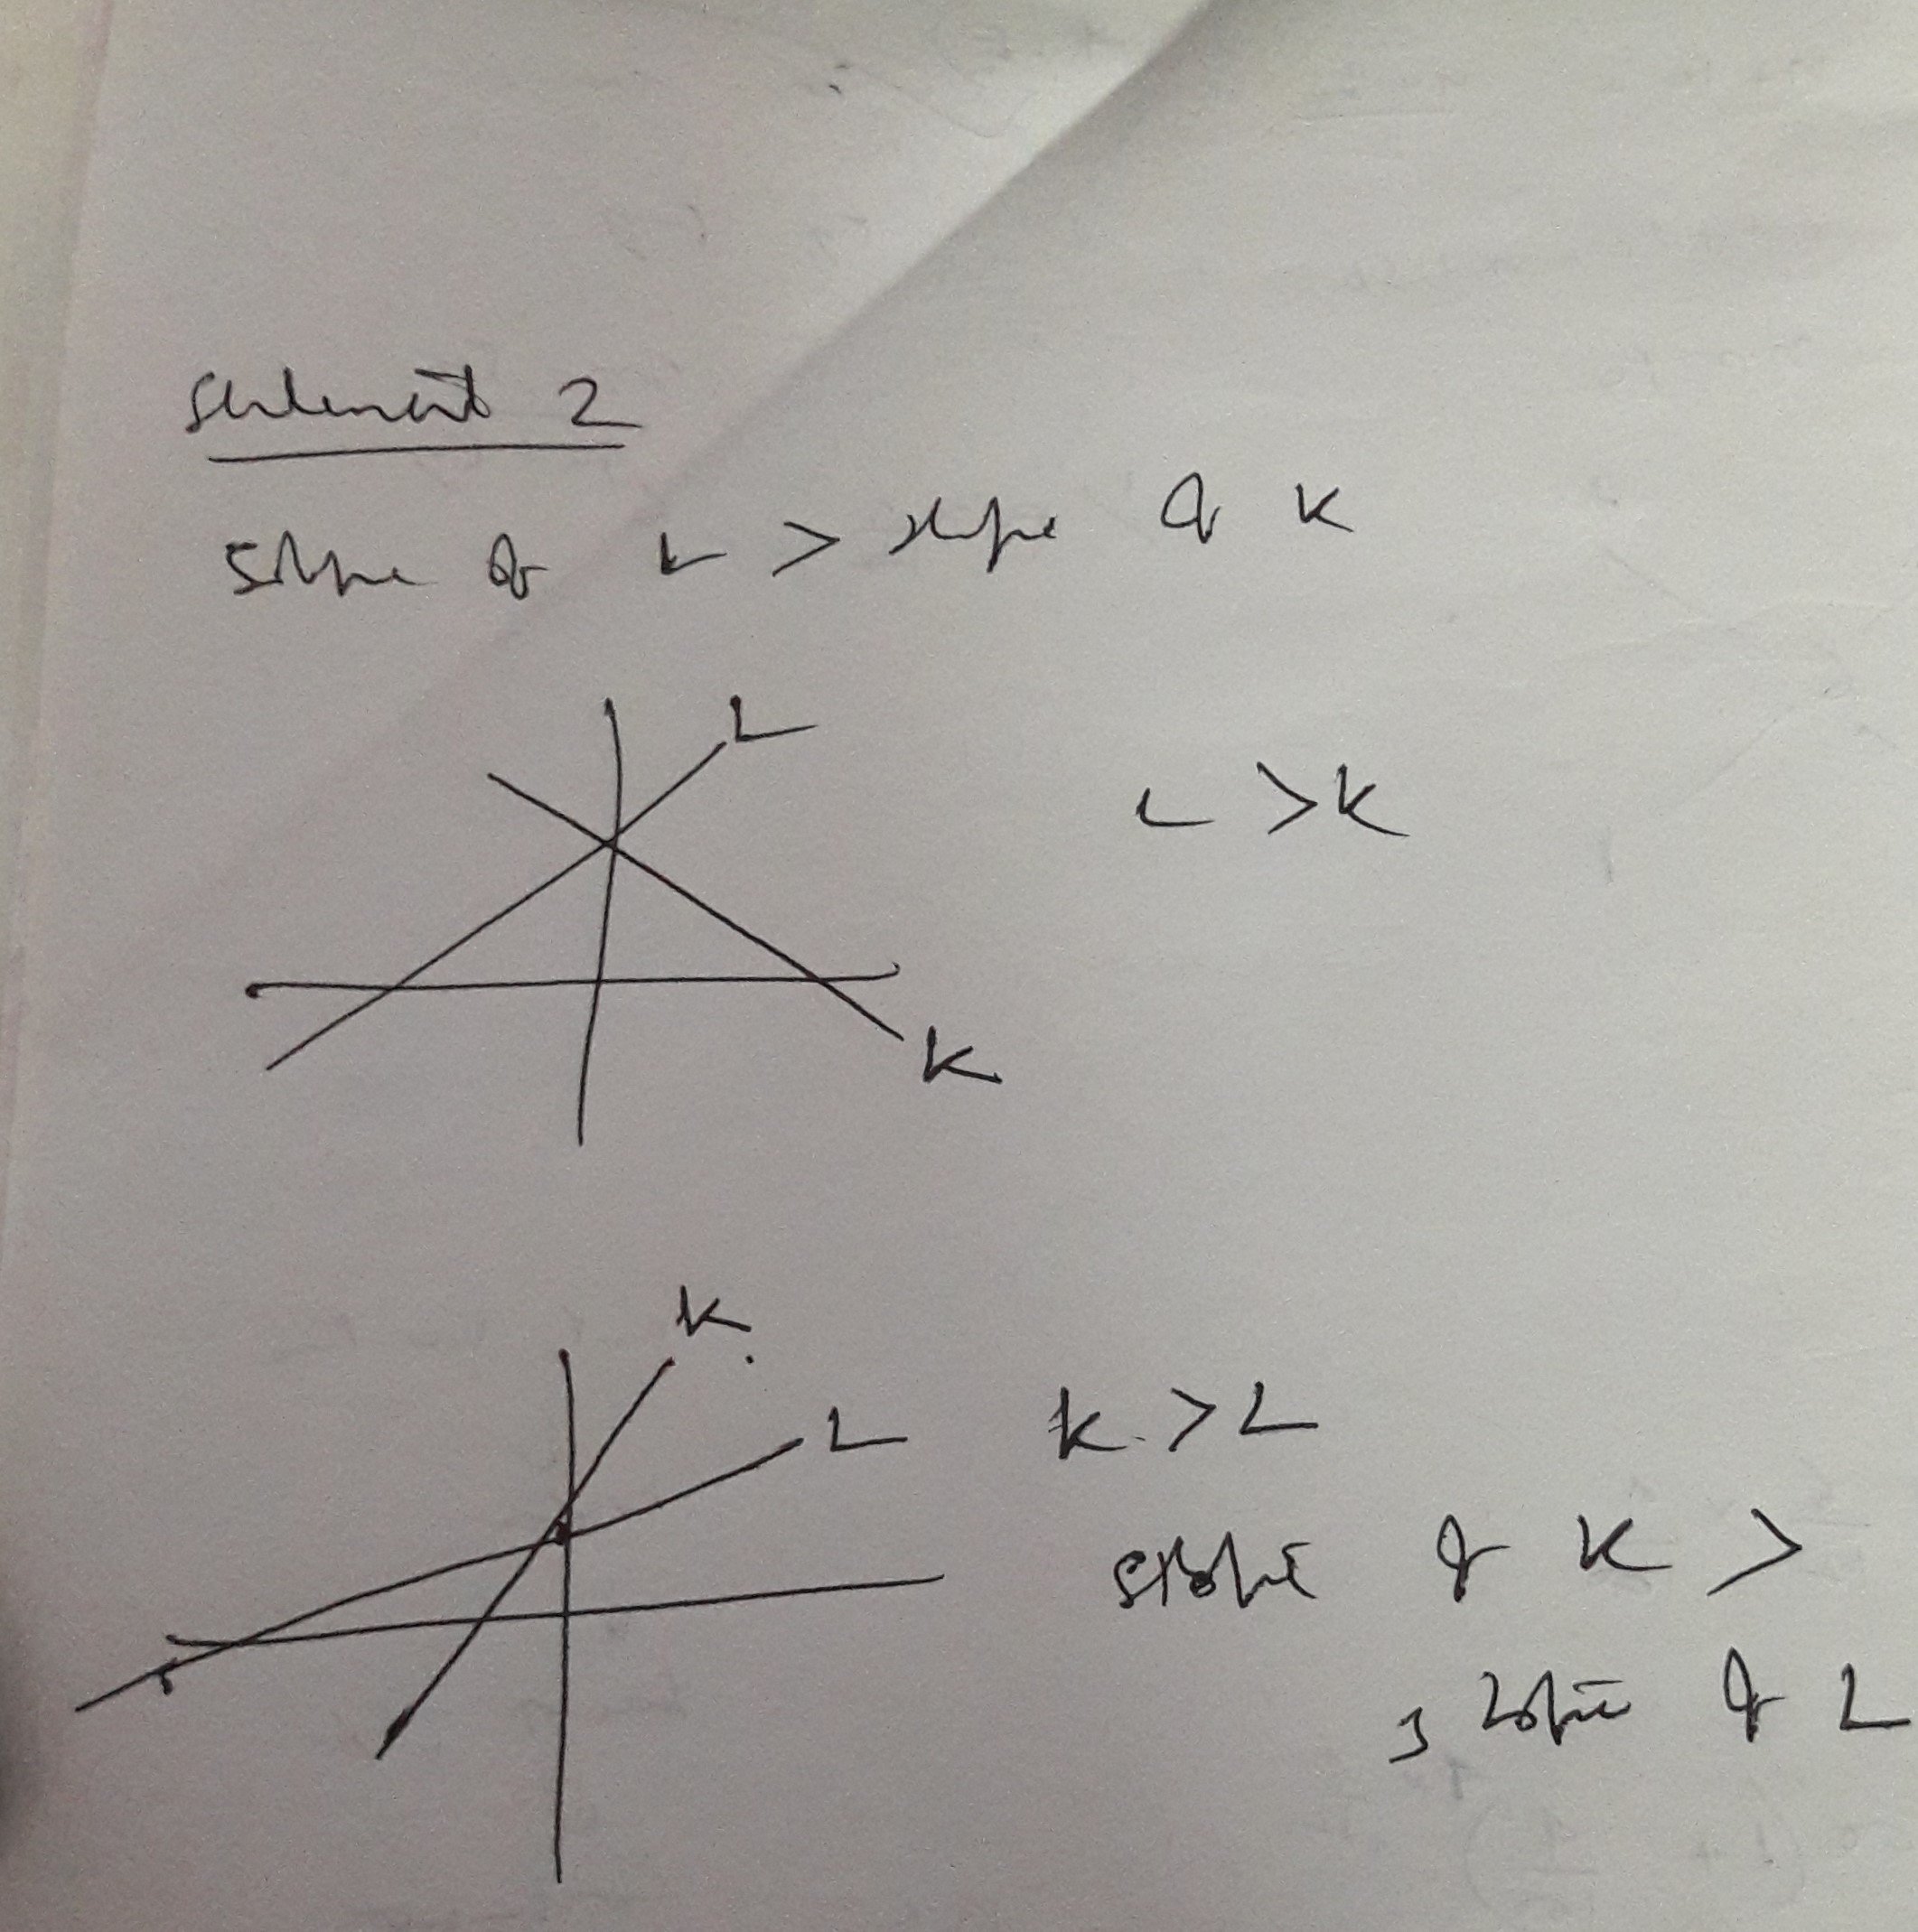 Statement 2
Slope of L > slope of K
L
L > K
K
K
L
K > L
slope of K >
slope of L